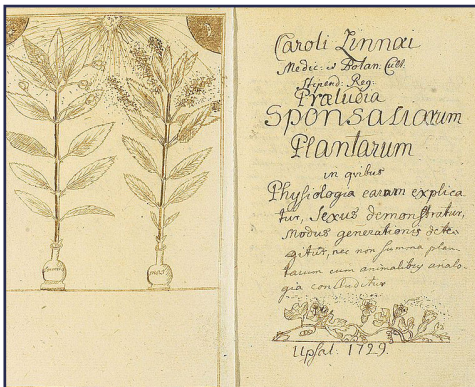 Caroli Linnæi
Medic: & Botan. Cult.
Stipend: Reg.
Præludia
Sponsaliarum
Plantarum
in qvibus
Physiologia earum explica
tur, Sexus demonstratur,
Modus generationis dete
gitur, nec non summa plan
tarum cum animalibus analo
gia concluditur
Upsal. 1729.